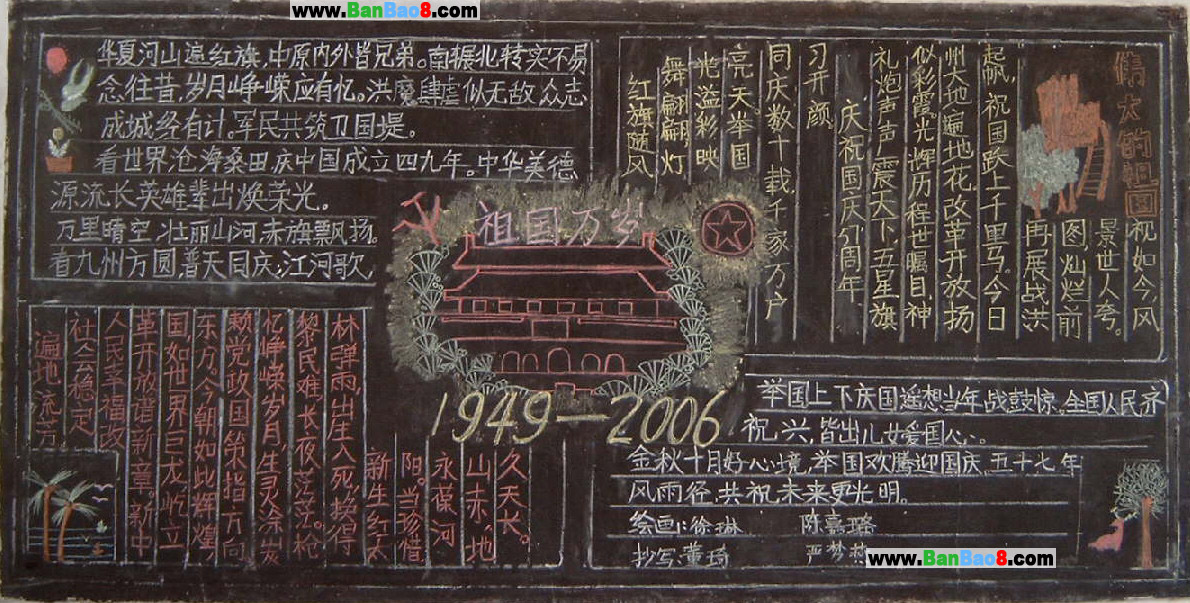 www.BanBao8.com
华夏河山遍红旗,中原内外皆兄弟。南辗北转实不易
念往昔,岁月峥嵘应有忆。洪魔肆虐似无敌,众志
成城经有计。军民共筑卫国堤。
看世界沧海桑田,庆中国成立四九年。中华美德
源流长英雄辈出焕荣光。
万里晴空,壮丽山河,赤旗飘扬。
看九州方圆,普天同庆;江河歌,
祖国的
祝如今,风
景世人夸。
图,灿烂前
再展战洪
起帆,祝国跌上千里马。今日
州大地遍地花,改革开放扬
似彩霞。光辉历程世瞩目,神
礼炮声声震天下,五星旗
庆祝国庆57周年
习开颜。
同庆数十载,千家万户
亮天。举国
光溢彩映
舞翩翩,灯
红旗随风
祖国万岁
1949—2006
林弹雨,出生入死,换得
黎民难,长夜茫茫。枪
忆峥嵘岁月,生灵涂炭
赖党政国策指方向
东方。今朝如此辉煌
国,如世界巨龙屹立
革开放谱新章。新中
人民幸福,改
社会稳定
遍地流芳
久天长。
山赤,地
永葆河
阳。当珍惜
新生红太
举国上下庆国遥想当年战鼓惊。全国人民齐
祝兴,皆出儿女爱国心。
金秋十月好心境,举国欢腾迎国庆,五十七年
风雨径,共祝未来更光明。
绘画:徐琳 陈嘉璐
抄写:董琦 严梦
www.BanBao8.com